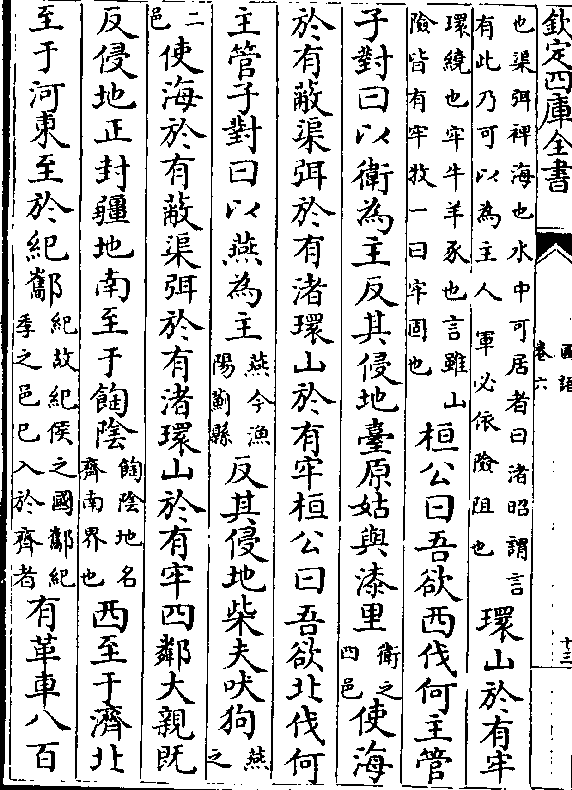 欽定四庫全書
國語
卷六
十三
也渠弭裨海也水中可居者曰渚昭謂言
有此乃可以為主人軍必依險阻也
環山於有牢
環繞也牢牛羊豕也言雖山
險皆有牢牧一曰牢固也
桓公曰吾欲西伐何主管
子對曰以衛為主反其侵地臺原姑與漆里
衛之
四邑
使海
於有蔽渠弭於有渚環山於有牢桓公曰吾欲北伐何
主管子對曰以燕為主
燕今漁
陽薊縣
反其侵地柴夫吠狗
燕之
二邑
使海於有蔽渠弭於有渚環山於有牢四鄰大親既
反侵地正封疆地南至于餡陰
餡陰地名
齊南界也
西至于濟北
至于河東至於紀酅
紀故紀侯之國酅紀
季之邑已入於齊者
有革車八百